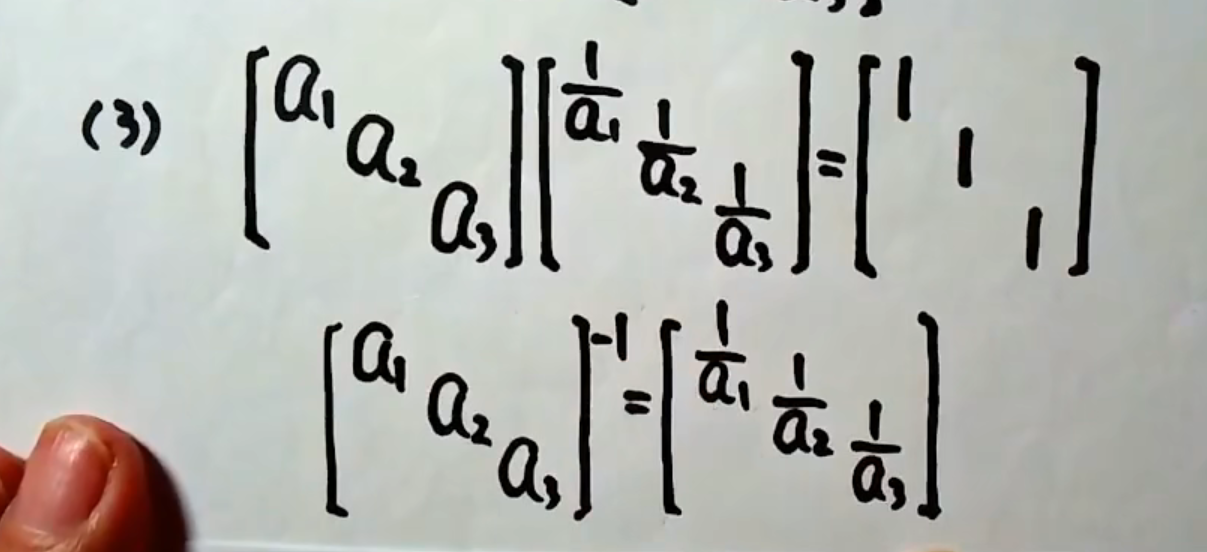 (3) [a₁ a₂ a₃] [1/a₁ 1/a₂ 1/a₃] = [1 1 1]
[a₁ a₂ a₃]⁻¹ = [1/a₁ 1/a₂ 1/a₃]